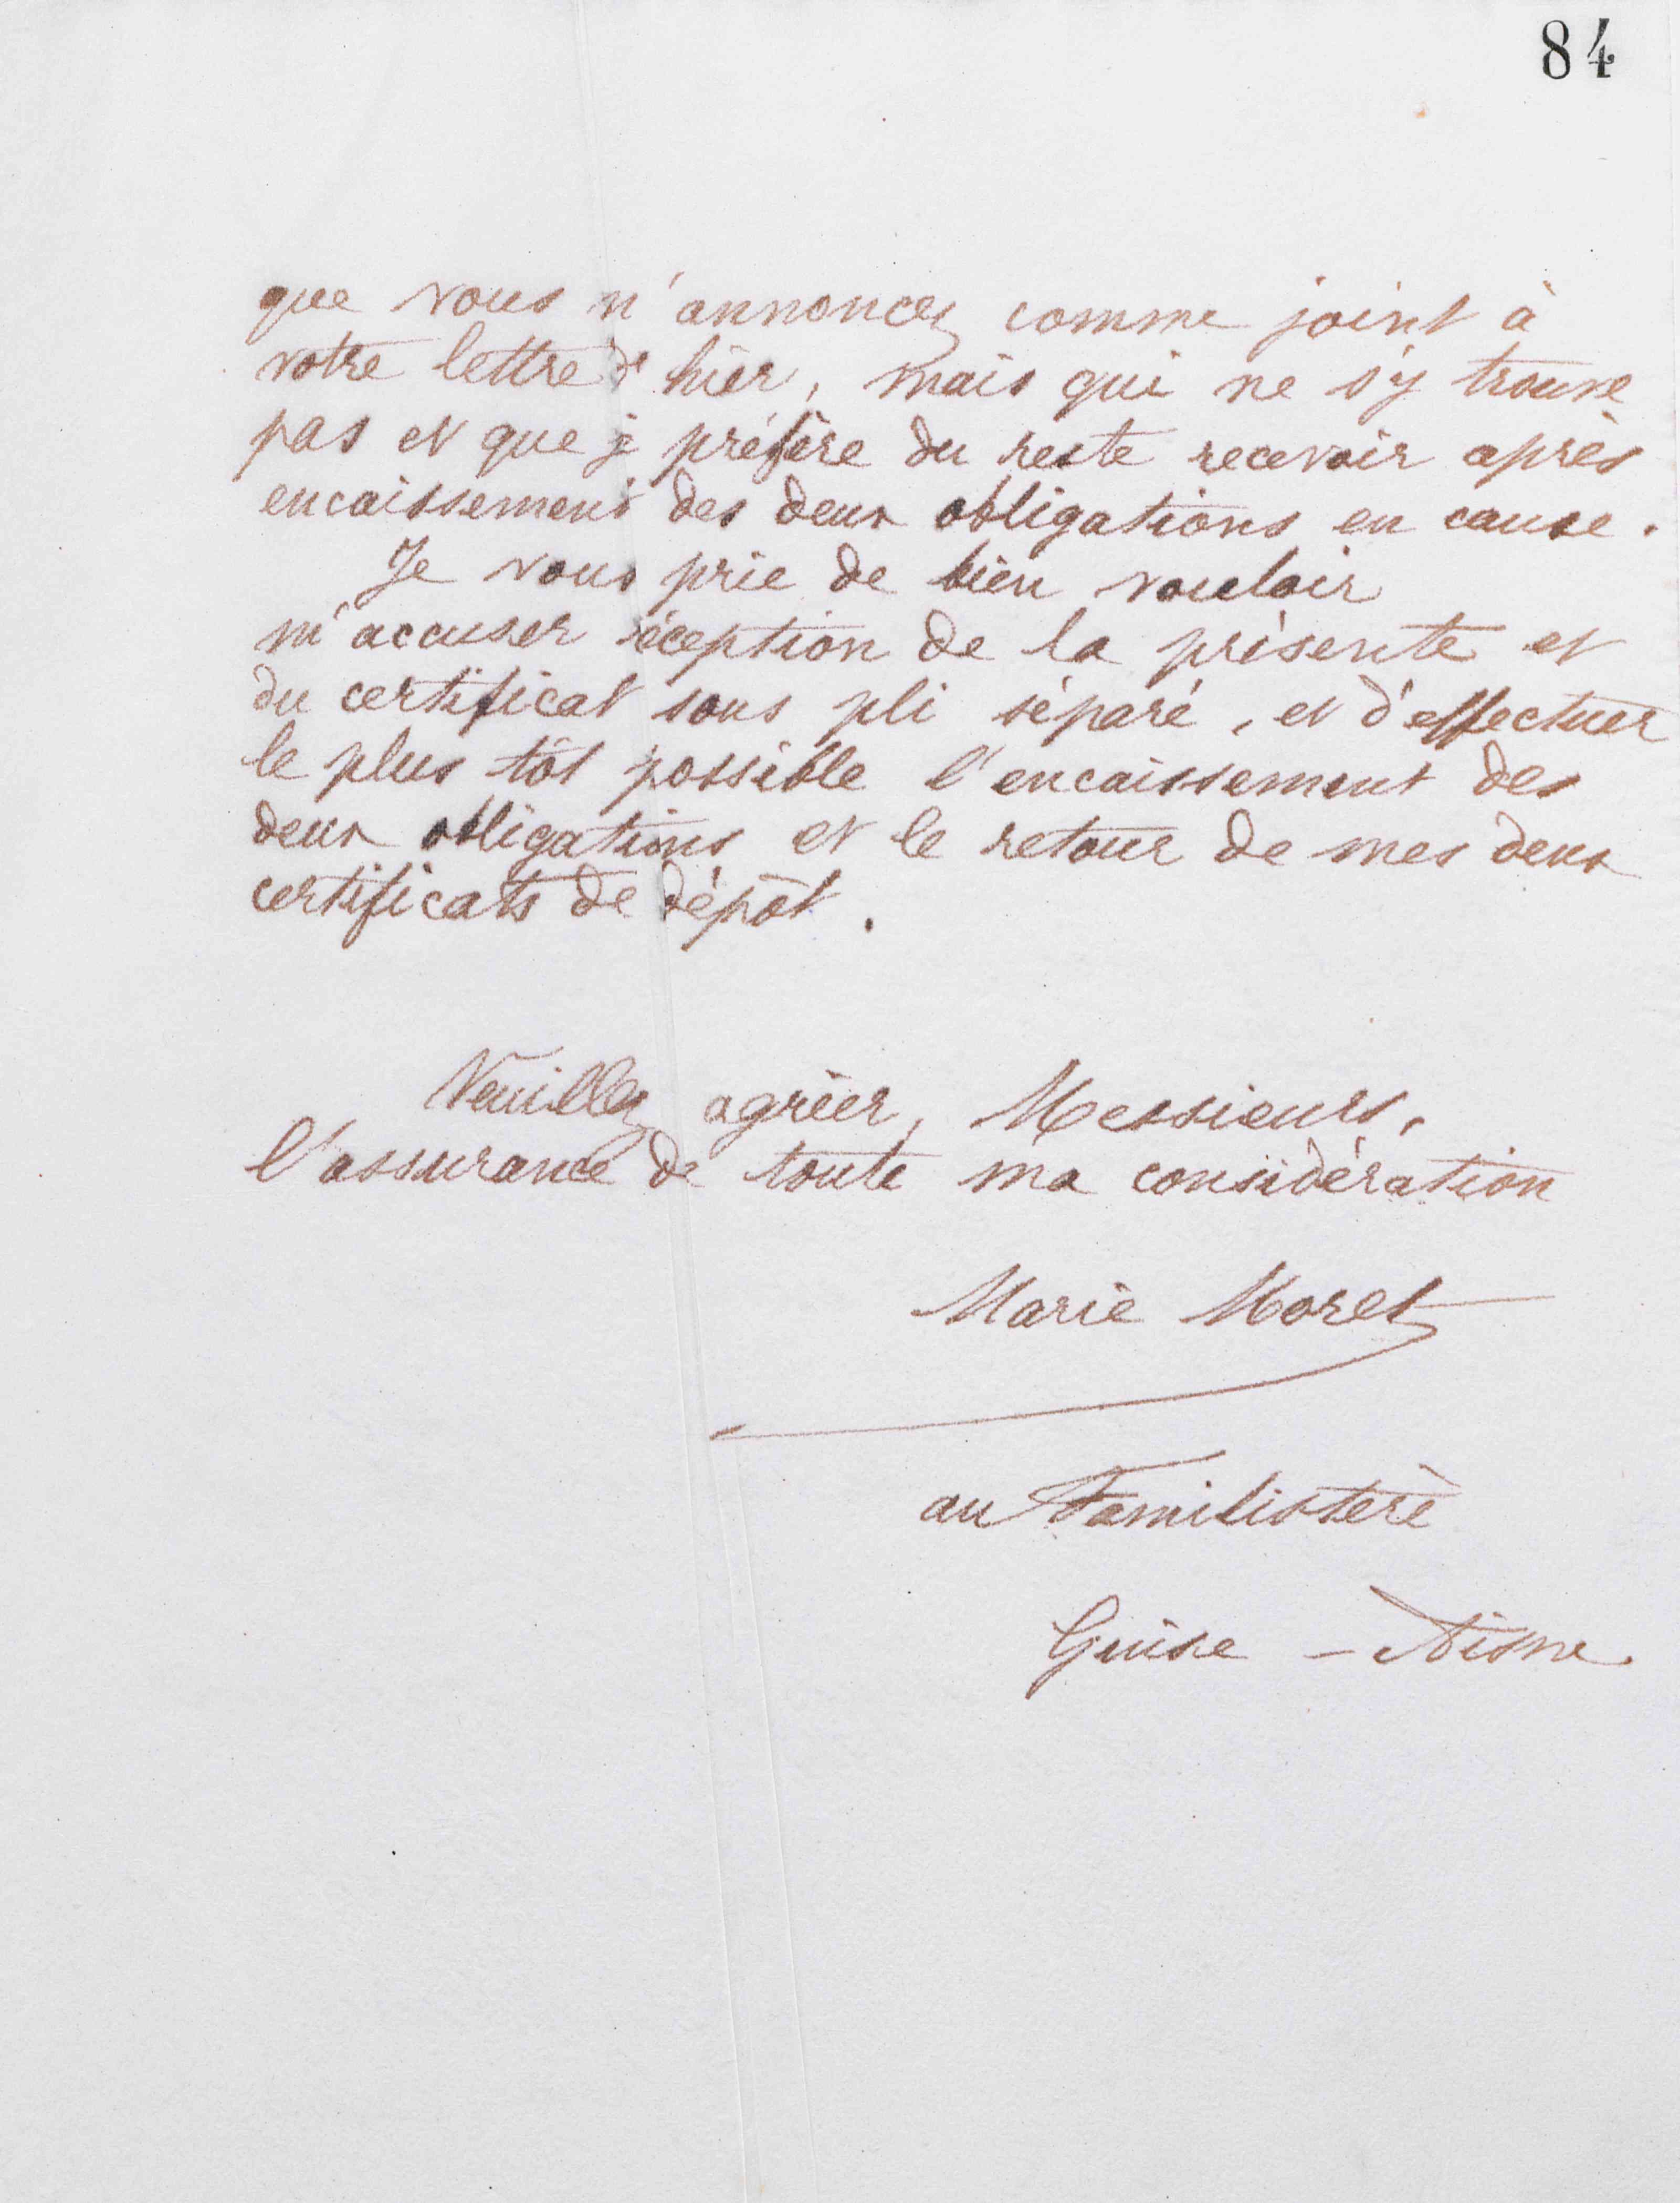 84
que vous m'annoncez comme joint à
votre lettre d'hier, mais qui ne s'y trouve
pas et que je préfère du reste recevoir après
encaissement des deux obligations en cause.
Je vous prie de bien vouloir
m'accuser réception de la présente et
du certificat sous pli séparé, et d'effectuer
le plus tôt possible l'encaissement des
deux obligations et le retour de mes deux
certificats de dépôt.
Veuillez agréer, Messieurs,
l'assurance de toute ma considération
Marie Moret
au Familistère
Guise - Aisne